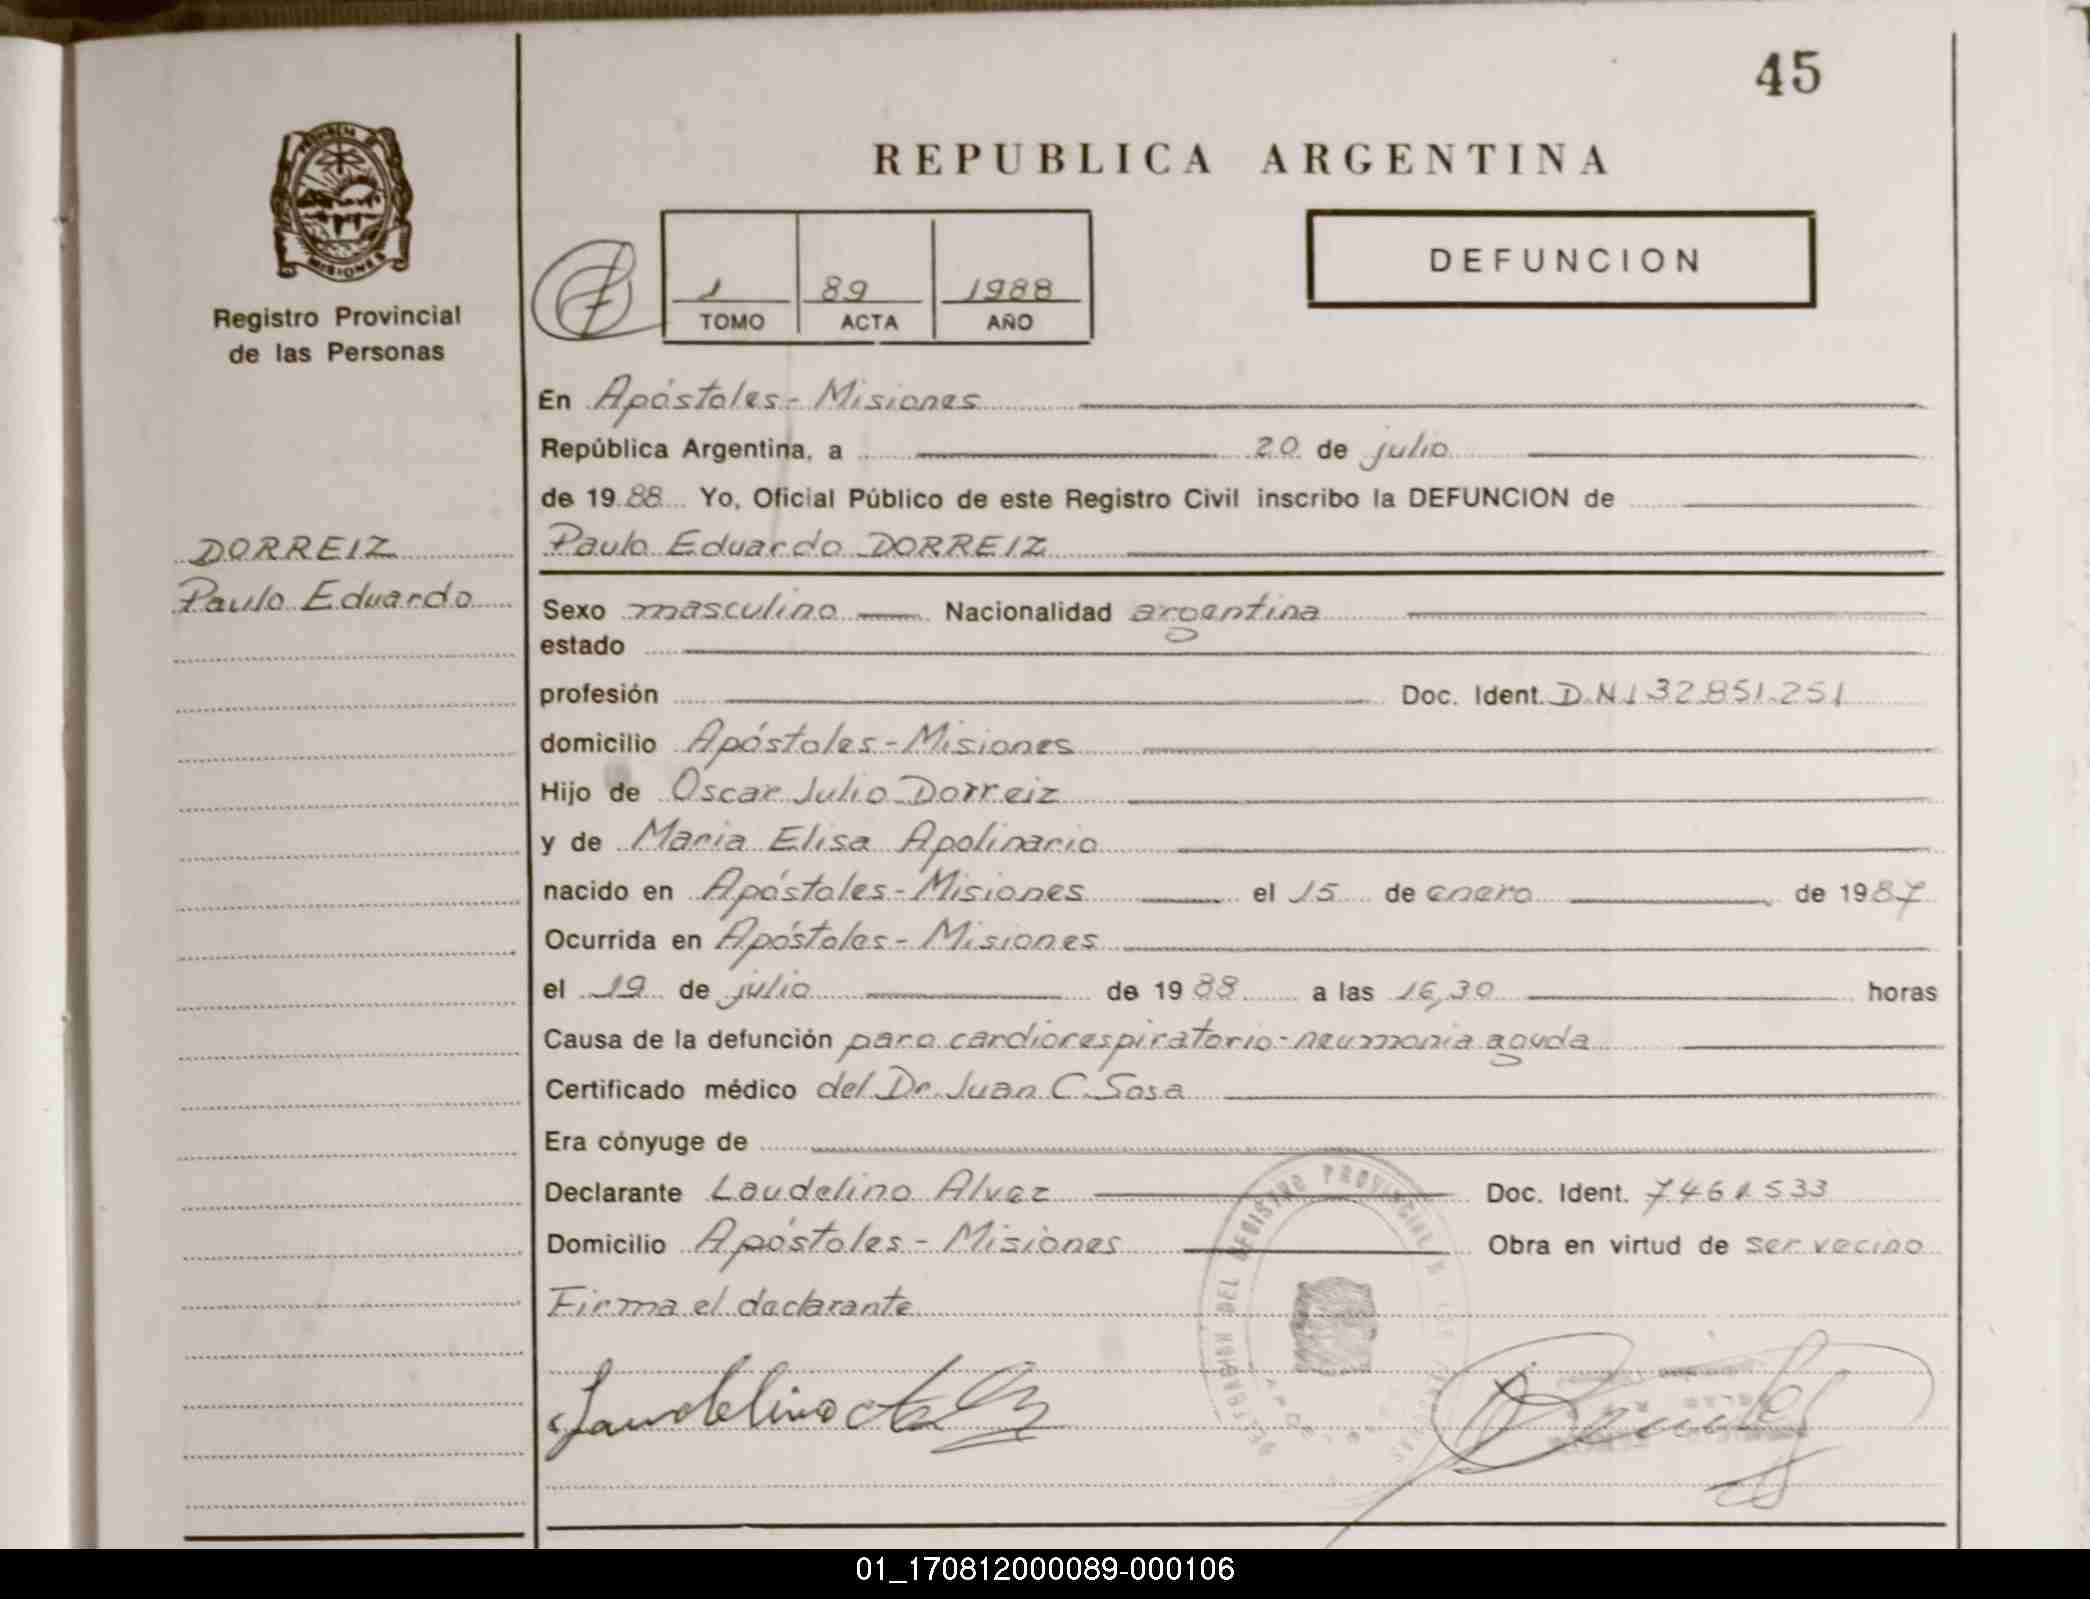 45
PROVINCIA DE
MISIONES
Registro Provincial
de las Personas
REPUBLICA ARGENTINA
1 89 1988
TOMO ACTA AÑO
DEFUNCION
En Apóstoles - Misiones
República Argentina, a 20 de julio
de 1988 Yo, Oficial Público de este Registro Civil inscribo la DEFUNCION de
DORREIZ
Paulo Eduardo
Paulo Eduardo DORREIZ
Sexo masculino Nacionalidad argentina
estado
profesión Doc. Ident. D.N.I 32.851.251
domicilio Apóstoles - Misiones
Hijo de Oscar Julio Dorreiz
y de Maria Elisa Apolinario
nacido en Apóstoles - Misiones el 15 de enero de 1987
Ocurrida en Apóstoles - Misiones
el 19 de julio de 1988 a las 16,30 horas
Causa de la defunción paro cardiorespiratorio - neumonia aguda
Certificado médico del Dr. Juan C. Sosa
Era cónyuge de
Declarante Laudelino Alvez Doc. Ident. 7.461.533
Domicilio Apóstoles - Misiones Obra en virtud de ser vecino
Firma el declarante
Laudelino
REGISTRO PROVINCIAL
01_170812000089-000106